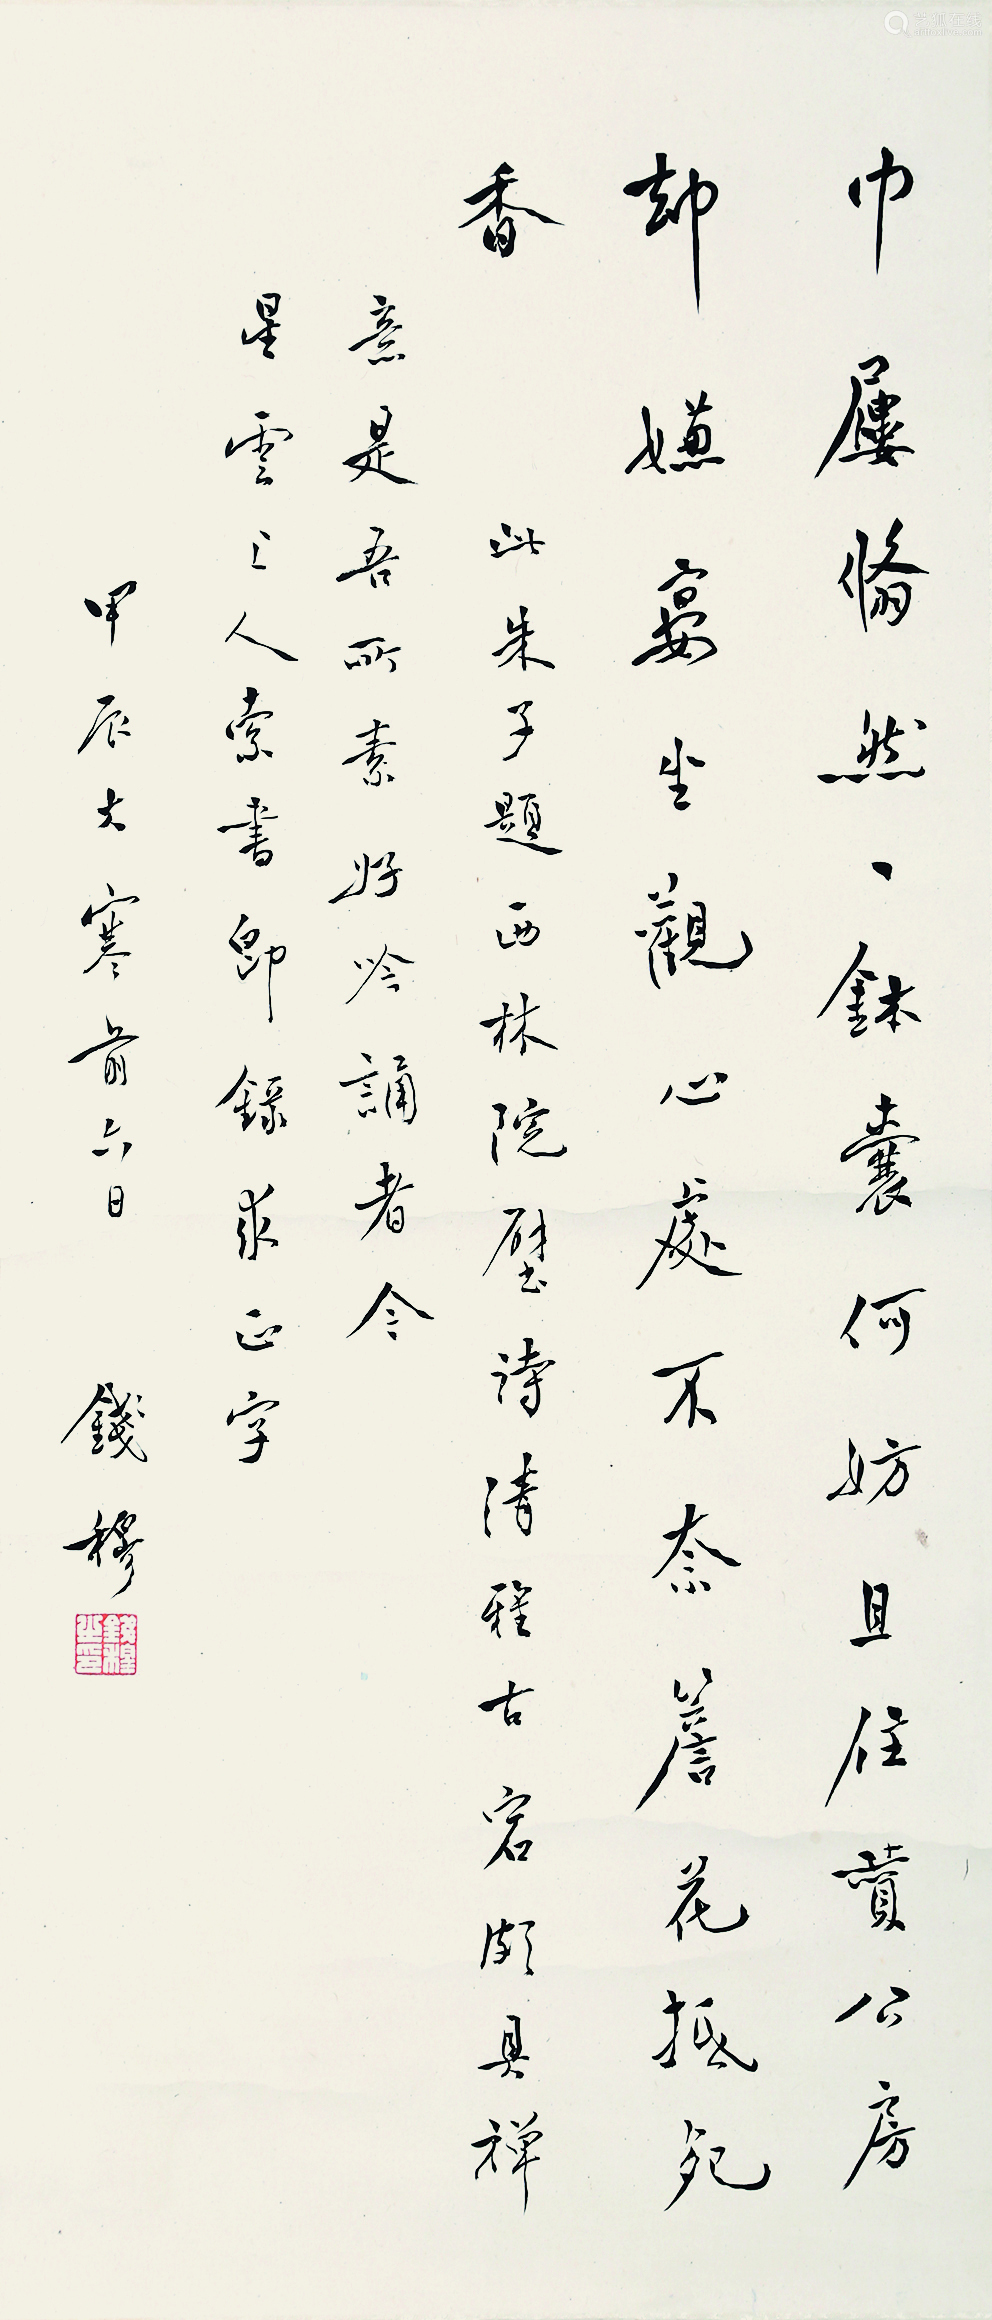 巾屨翛然一鉢囊何妨且住贊公房
却嫌宴坐觀心處不奈簷花抵死
香
此朱子題西林院壁詩清雅古宕頗具禪
意是吾所素好吟誦者今
星雲上人索書即錄求正字
甲辰大寒前六日 錢穆
錢穆之印